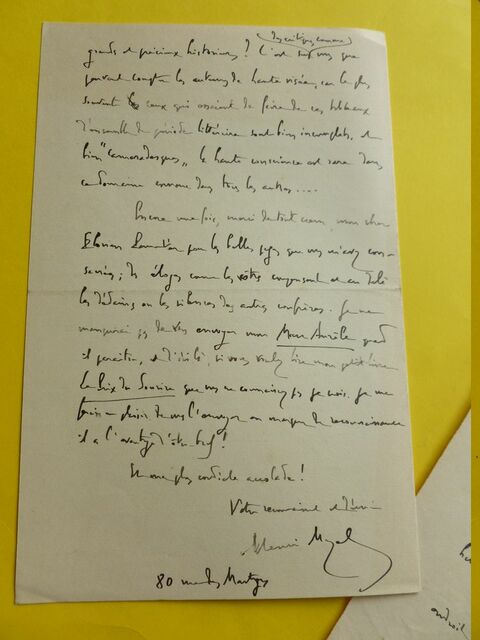 grands et précieux historiens ? C'est sur vous que
peuvent compter les auteurs de haute visée, car le plus
souvent ceux qui essaient de faire de ces tableaux
d'ensemble de période littéraire sont bien incomplets, et
bien "camaradesques", la haute conscience est rare dans
ce domaine comme dans tous les autres....
Encore une fois, merci de tout cœur, mon cher
Florian Parmentier pour les belles pages que vous m'avez con-
sacrées ; des éloges comme les vôtres compensent et au delà
les dédains ou les silences des autres confrères. Je ne
manquerai pas de vous envoyer mon Marc Aurèle quand
il paraîtra, et d'ici là, si vous voulez lire mon petit livre
le Prix du Sourire que vous ne connaissez pas je crois. Je me
ferais un plaisir de vous l'envoyer en marque de reconnaissance
il a l'avantage d'être bref !
Et ma plus cordiale accolade !
Votre reconnaissant et dévoué
Henri
80 rue des Martyrs
endroit